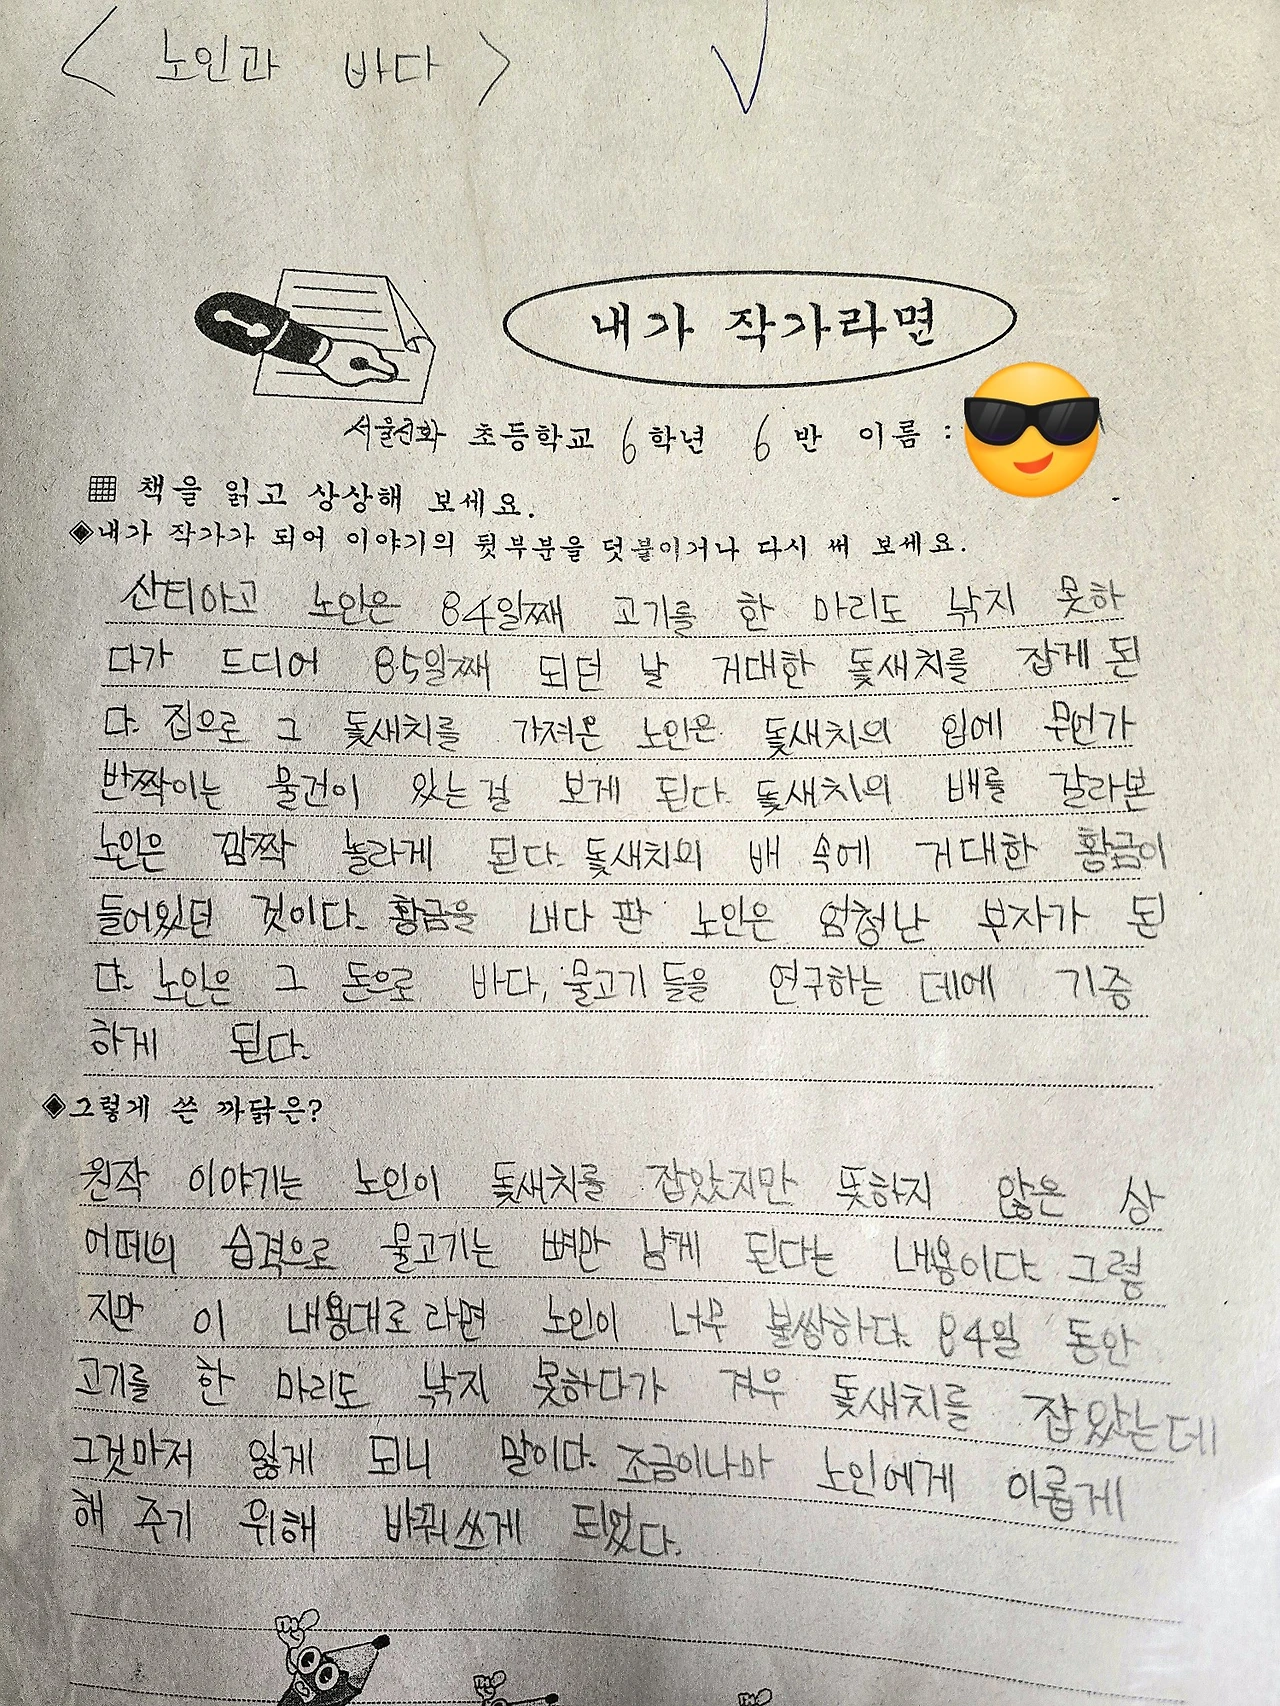 < 노인과 바다 >
내가 작가라면
서울신화 초등학교 6학년 6반 이름 :
책을 읽고 상상해 보세요.
◈내가 작가가 되어 이야기의 뒷부분을 덧붙이거나 다시 써 보세요.
산티아고 노인은 84일째 고기를 한 마리도 낚지 못하
다가 드디어 85일째 되던 날 거대한 돛새치를 잡게 된
다. 집으로 그 돛새치를 가져온 노인은 돛새치의 입에 무언가
반짝이는 물건이 있는걸 보게 된다. 돛새치의 배를 갈라본
노인은 깜짝 놀라게 된다. 돛새치의 배 속에 거대한 황금이
들어있던 것이다. 황금을 내다 판 노인은 엄청난 부자가 된
다. 노인은 그 돈으로 바다, 물고기 들을 연구하는 데에 기증
하게 된다.
◈그렇게 쓴 까닭은?
원작 이야기는 노인이 돛새치를 잡았지만 뜻하지 않은 상
어떼의 습격으로 물고기는 뼈만 남게 된다는 내용이다. 그렇
지만 이 내용대로 라면 노인이 너무 불쌍하다. 84일 동안
고기를 한 마리도 낚지 못하다가 겨우 돛새치를 잡았는데
그것마저 잃게 되니 말이다. 조금이나마 노인에게 이롭게
해 주기 위해 바꿔쓰게 되었다.